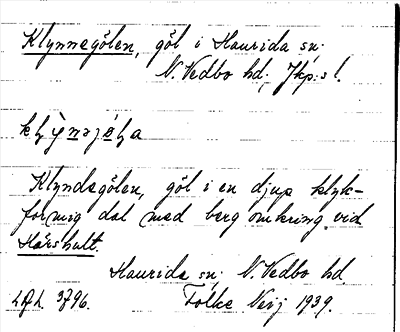 Klynnegölen, göl i Haurida sn.
N. Vedbo hd; Jkp:s l.
Klyndegölen, göl i en djup klyk-
formig dal med berg omkring vid
Hårshult.
Haurida sn; N. Vedbo hd.
3796. Folke 1939.